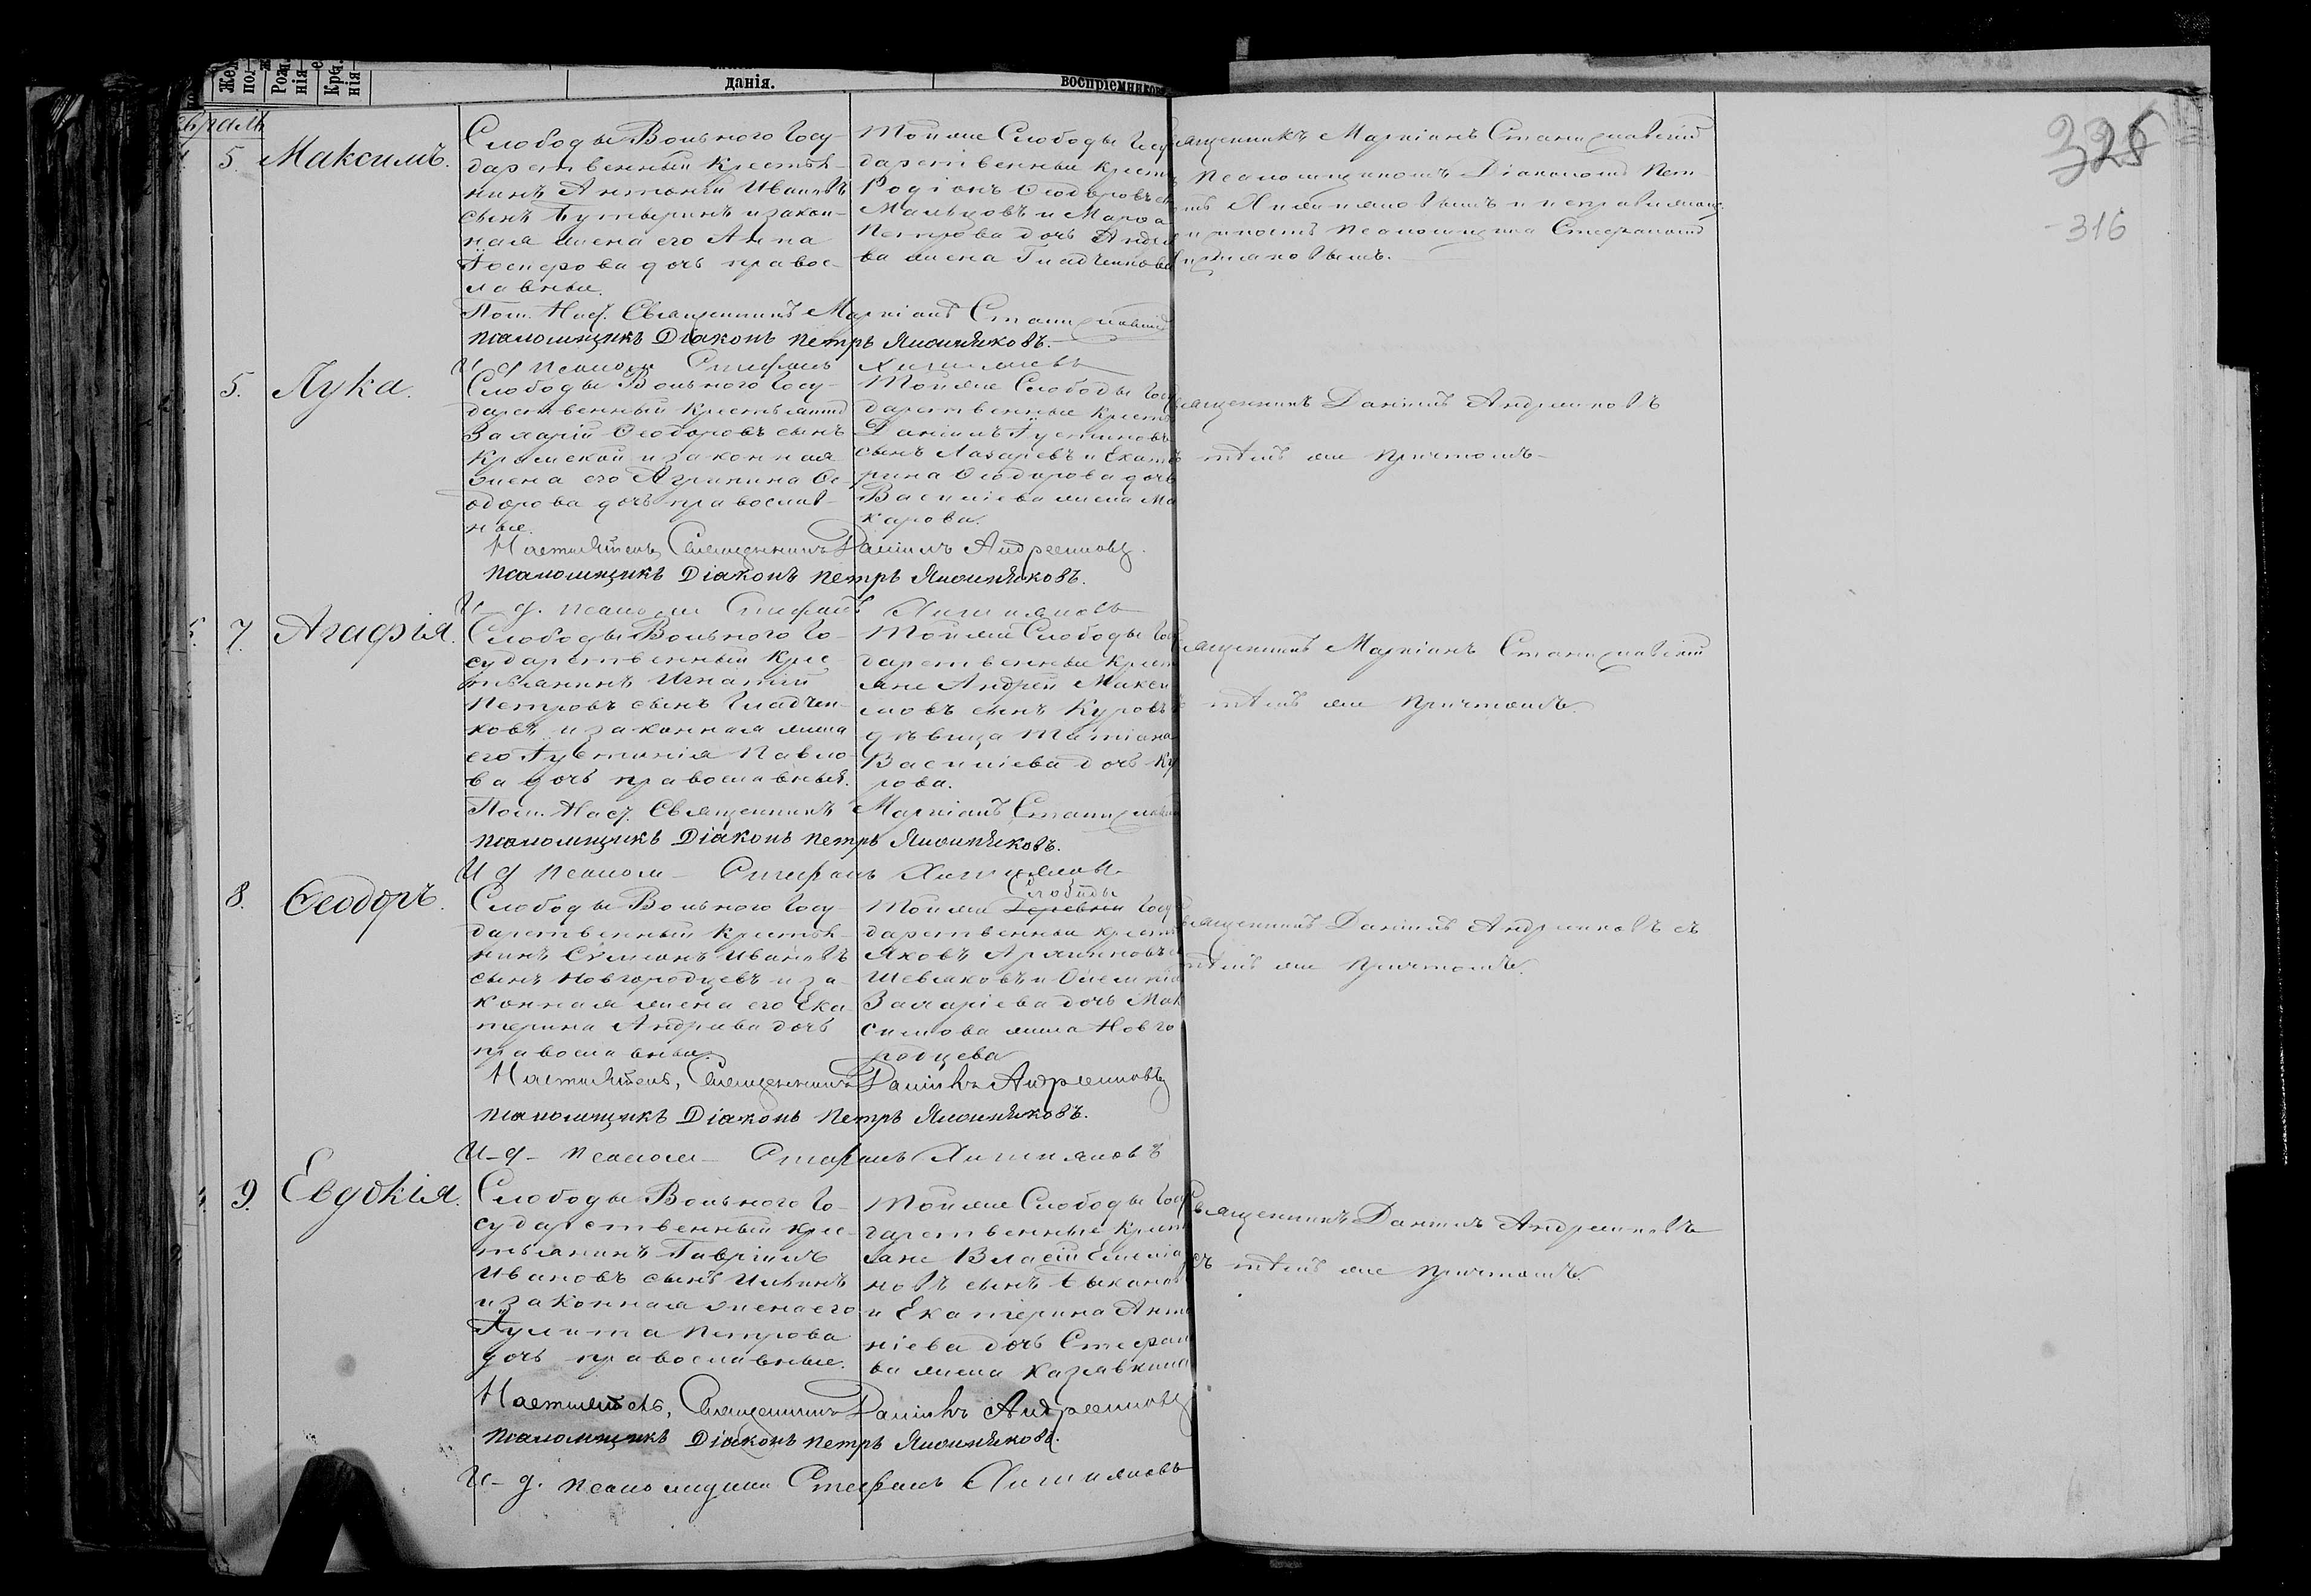 Жен
пол
Рож
нія
Кре
нія
данія.
воспріемников
5. Максимъ.
Слободы Вольного Госу-
дарственный крестья-
нинъ Антоній Ивановъ
сынъ Бутыринъ и закон-
ная жена его Анна
Іосифова дочь правос-
лавные.
Тойже Слободы Госу
дарственные крест
Родіонъ Ѳеодоровъ
Мальцовъ и Марѳа
Петрова дочь Андре
ва жена Гладченкова
Священникъ Маркіанъ Станиславскій
Псаломщикомъ Діакономъ Пет-
псаломщика Стефаномъ
Пом. Наст. Священникъ Маркіанъ Станиславскій
псаломщикъ Діаконъ Петръ
И д псалом Стефанъ
5. Лука.
Слободы Вольного Госу-
дарственный крестьянинъ
Захарій Ѳеодоровъ сынъ
Кромской и законная
жена его Агрипина Ѳе-
одорова дочь православ-
ные.
Тойже Слободы Госу
дарственные крестья
Даніилъ Іустиновъ
сынъ Лазаревъ и Екате
рина Ѳеодорова дочь
Василіева жена Ма
карова.
Священникъ Даніилъ Андреенковъ
тѣмъ же причтомъ
Настоятель, Священникъ Даніилъ Андреенковъ.
псаломщикъ Діаконъ Петръ
И д. псалом Стефанъ
7. Агафія.
Слободы Вольного Го-
сударственный крес-
тьянинъ Игнатій
Петровъ сынъ Гладчен-
ковъ и законная жена
его Іустинія Павло-
ва дочь православныя.
Тойже Слободы Госу
дарственные крест
яне Андрей Макси
мовъ сынъ Куровъ
дѣвица Татіана
Василіева дочь Ку
рова.
Священникъ Маркіанъ Станиславскій
тѣмъ же причтомъ.
Пом. Наст. Священникъ Маркіанъ Станиславскій
псаломщикъ Діаконъ Петръ
И д псалом Стефанъ
8. Ѳеодоръ.
Слободы Вольного Госу-
дарственный крестья-
нинъ Сѵмеонъ Ивановъ
сынъ Новгородцевъ и за-
конная жена его Ека-
терина Андреева дочь
православные.
Слободы
Тойже Деревни Госу
дарственные крестья
Яковъ
Шевляковъ и
Захаріева дочь Мак
симова жена Новго
родцева
Священникъ Даніилъ Андреенковъ съ
тѣмъ же причтомъ.
Настоятель, Священникъ Даніилъ Андреенковъ
псаломщикъ Діаконъ Петръ
И д псалом Стефанъ
9. Евдокія.
Слободы Вольного Го-
сударственный крес-
тьянинъ Гавріилъ
Ивановъ сынъ Ильинъ
и законная жена его
Іулита Петрова
дочь православные.
Тойже Слободы Госу
дарственные крест
яне Власій Емеліа
новъ сынъ
и Екатерина Анто
ніева дочь Стефан
ва жена
Священникъ Даніилъ Андреенковъ
съ тѣмъ же причтомъ.
Настоятель, Священникъ Даніилъ Андреенковъ
псаломщикъ Діаконъ Петръ
И д. псаломщика Стефанъ
316